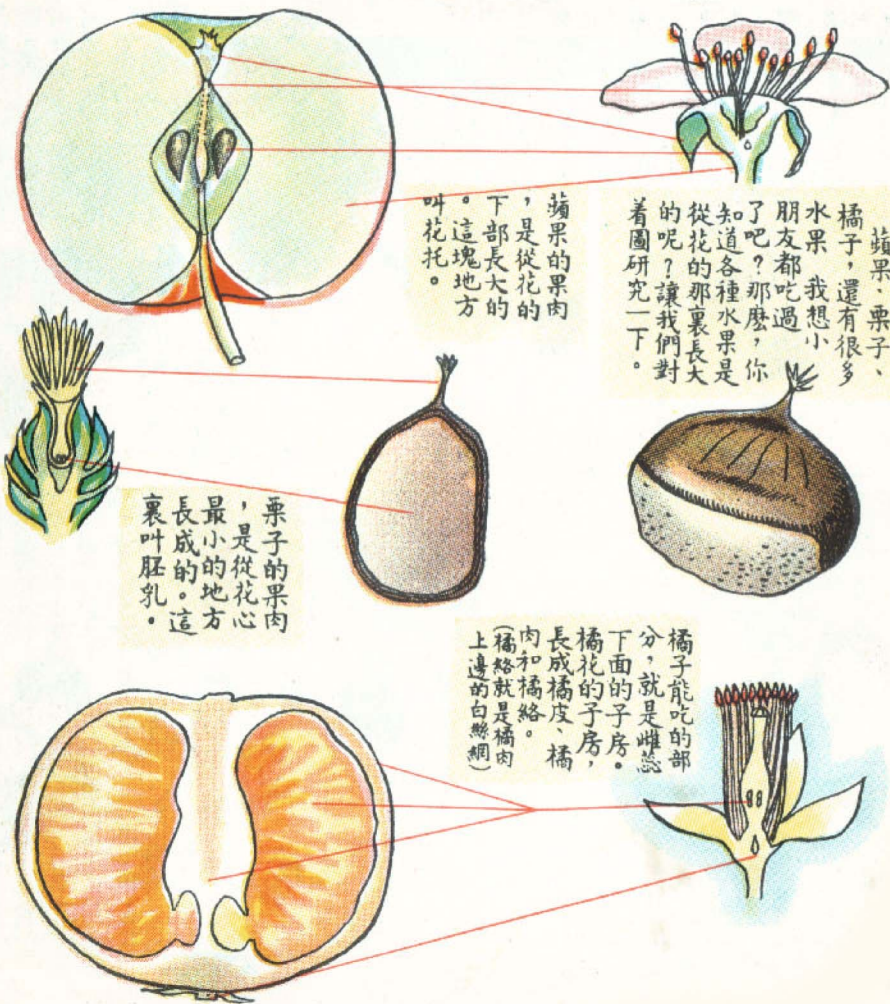 蘋果、栗子、
橘子，還有很多
水果 我想小
朋友都吃過
了吧？那麼，你
知道各種水果是
從花的那裏長大
的呢？讓我們對
着圖研究一下。
蘋果的果肉
，是從花的
下部長大的
。這塊地方
叫花托。
栗子的果肉
，是從花心
最小的地方
長成的。這
裏叫胚乳。
橘子能吃的部
分，就是雌蕊
下面的子房。
橘花的子房，
長成橘皮、橘
肉和橘絡。
（橘絡就是橘肉
上邊的白絲網）